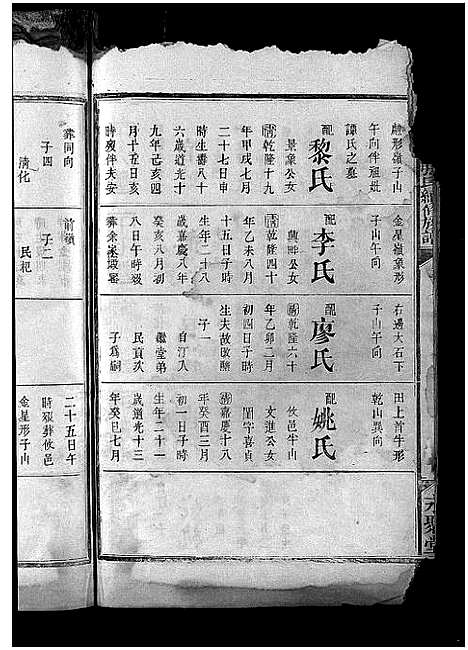 形嶺子山
午向伴祖妣
譚氏之塟
配黎氏
景象公女
清乾隆十九
年甲戌七月
二十七日申
時生壽八十
六歲道光十
九年己亥四
月十五日亥
時歿伴夫安
金星嶺象形
子山午向
配李氏
興公女
清乾隆四十
年乙未八月
十五日子時
生年二十八
歲嘉慶八年
癸亥八月初
八日午時歿
右邊大石下
子山午向
配廖氏
清乾隆六十
年乙卯二月
初四日子時
生夫故改醮
子一
自汀入
繼堂弟
民貢次
子為嗣
田上首牛形
乾山巽向
配姚氏
攸邑半山
文進公女
閨字喜貞
清嘉慶十八
年癸酉三月
初一日子時
生年二十一
歲道光十三
年癸巳七月
氏續修族譜
永聚堂
葬同向
子四
清化
前嶺
子二
民杞
二十五日午
時歿葬攸邑
金星形子山